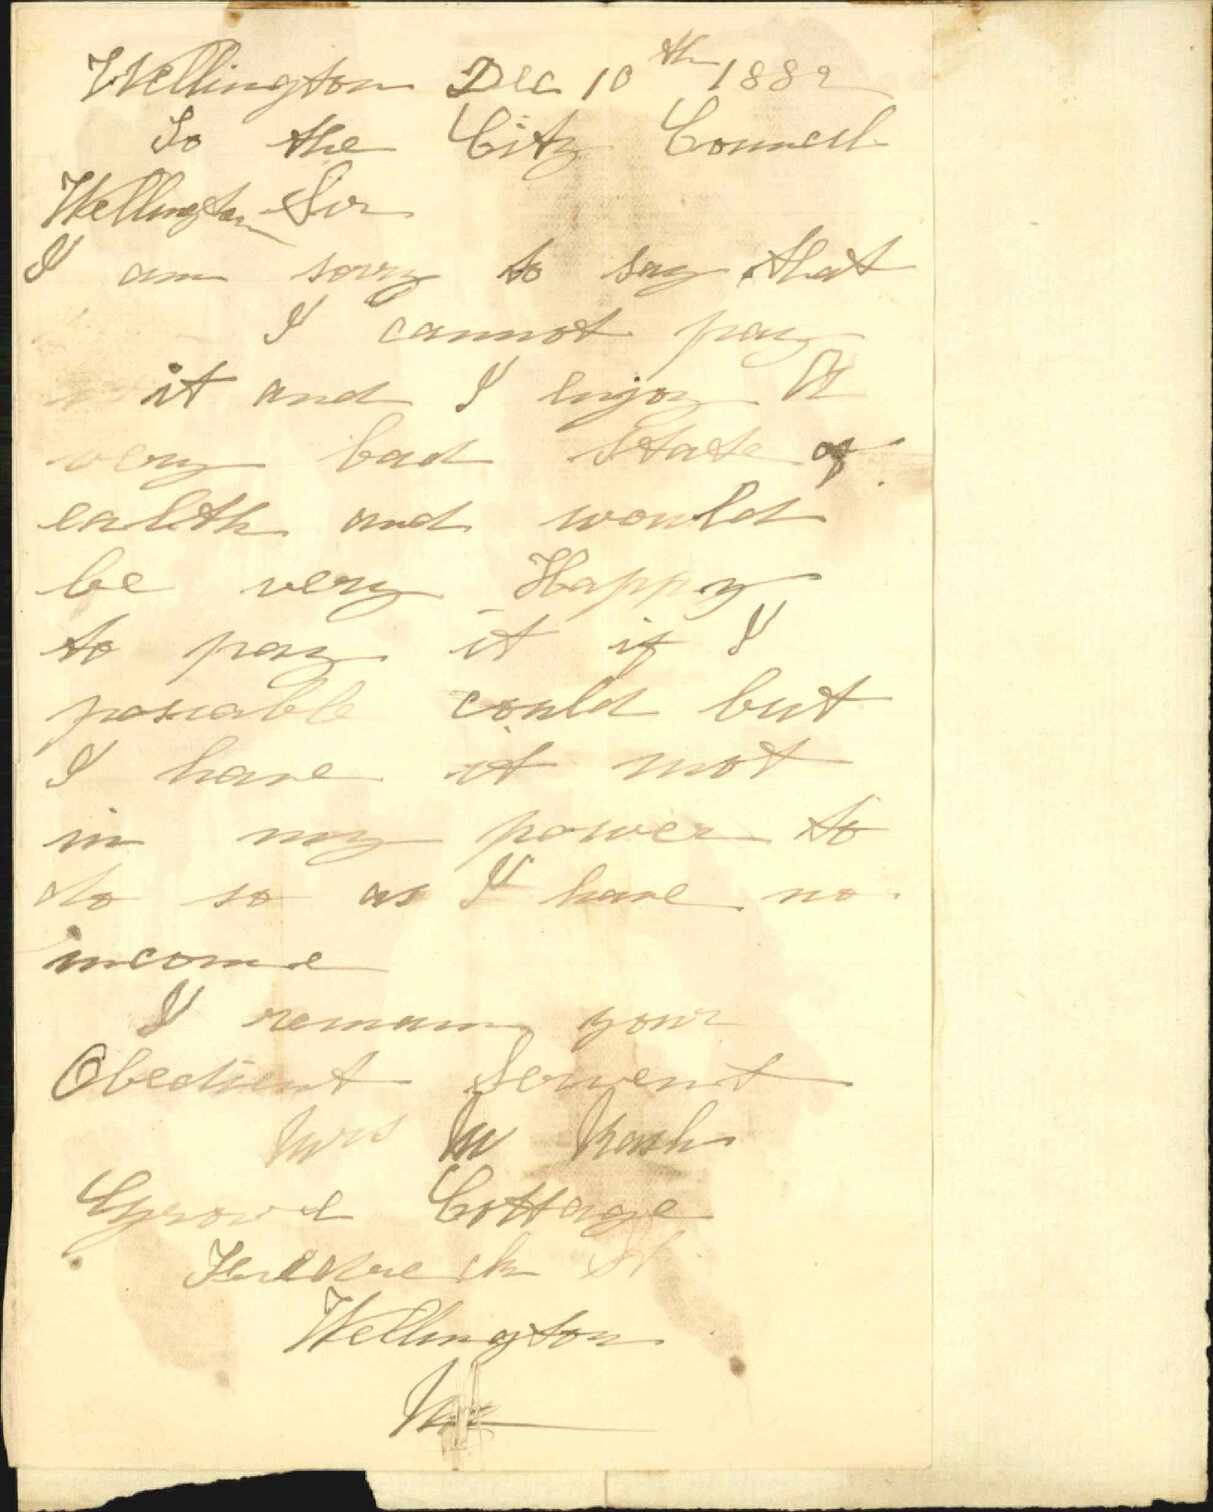 Wellington Dec 10th 1882
To the City Council
Wellington Sir
I am sorry to say that
I cannot pay
it and I enjoy A
very bad state of
ealth and would
be very Happy
to pay it if I
possiable could but
I have it not
in my power to
do so as I have no
income
I remain your
Obedient Servent
Mrs M Nash
Grove Cottage
Fredrick St
Wellington